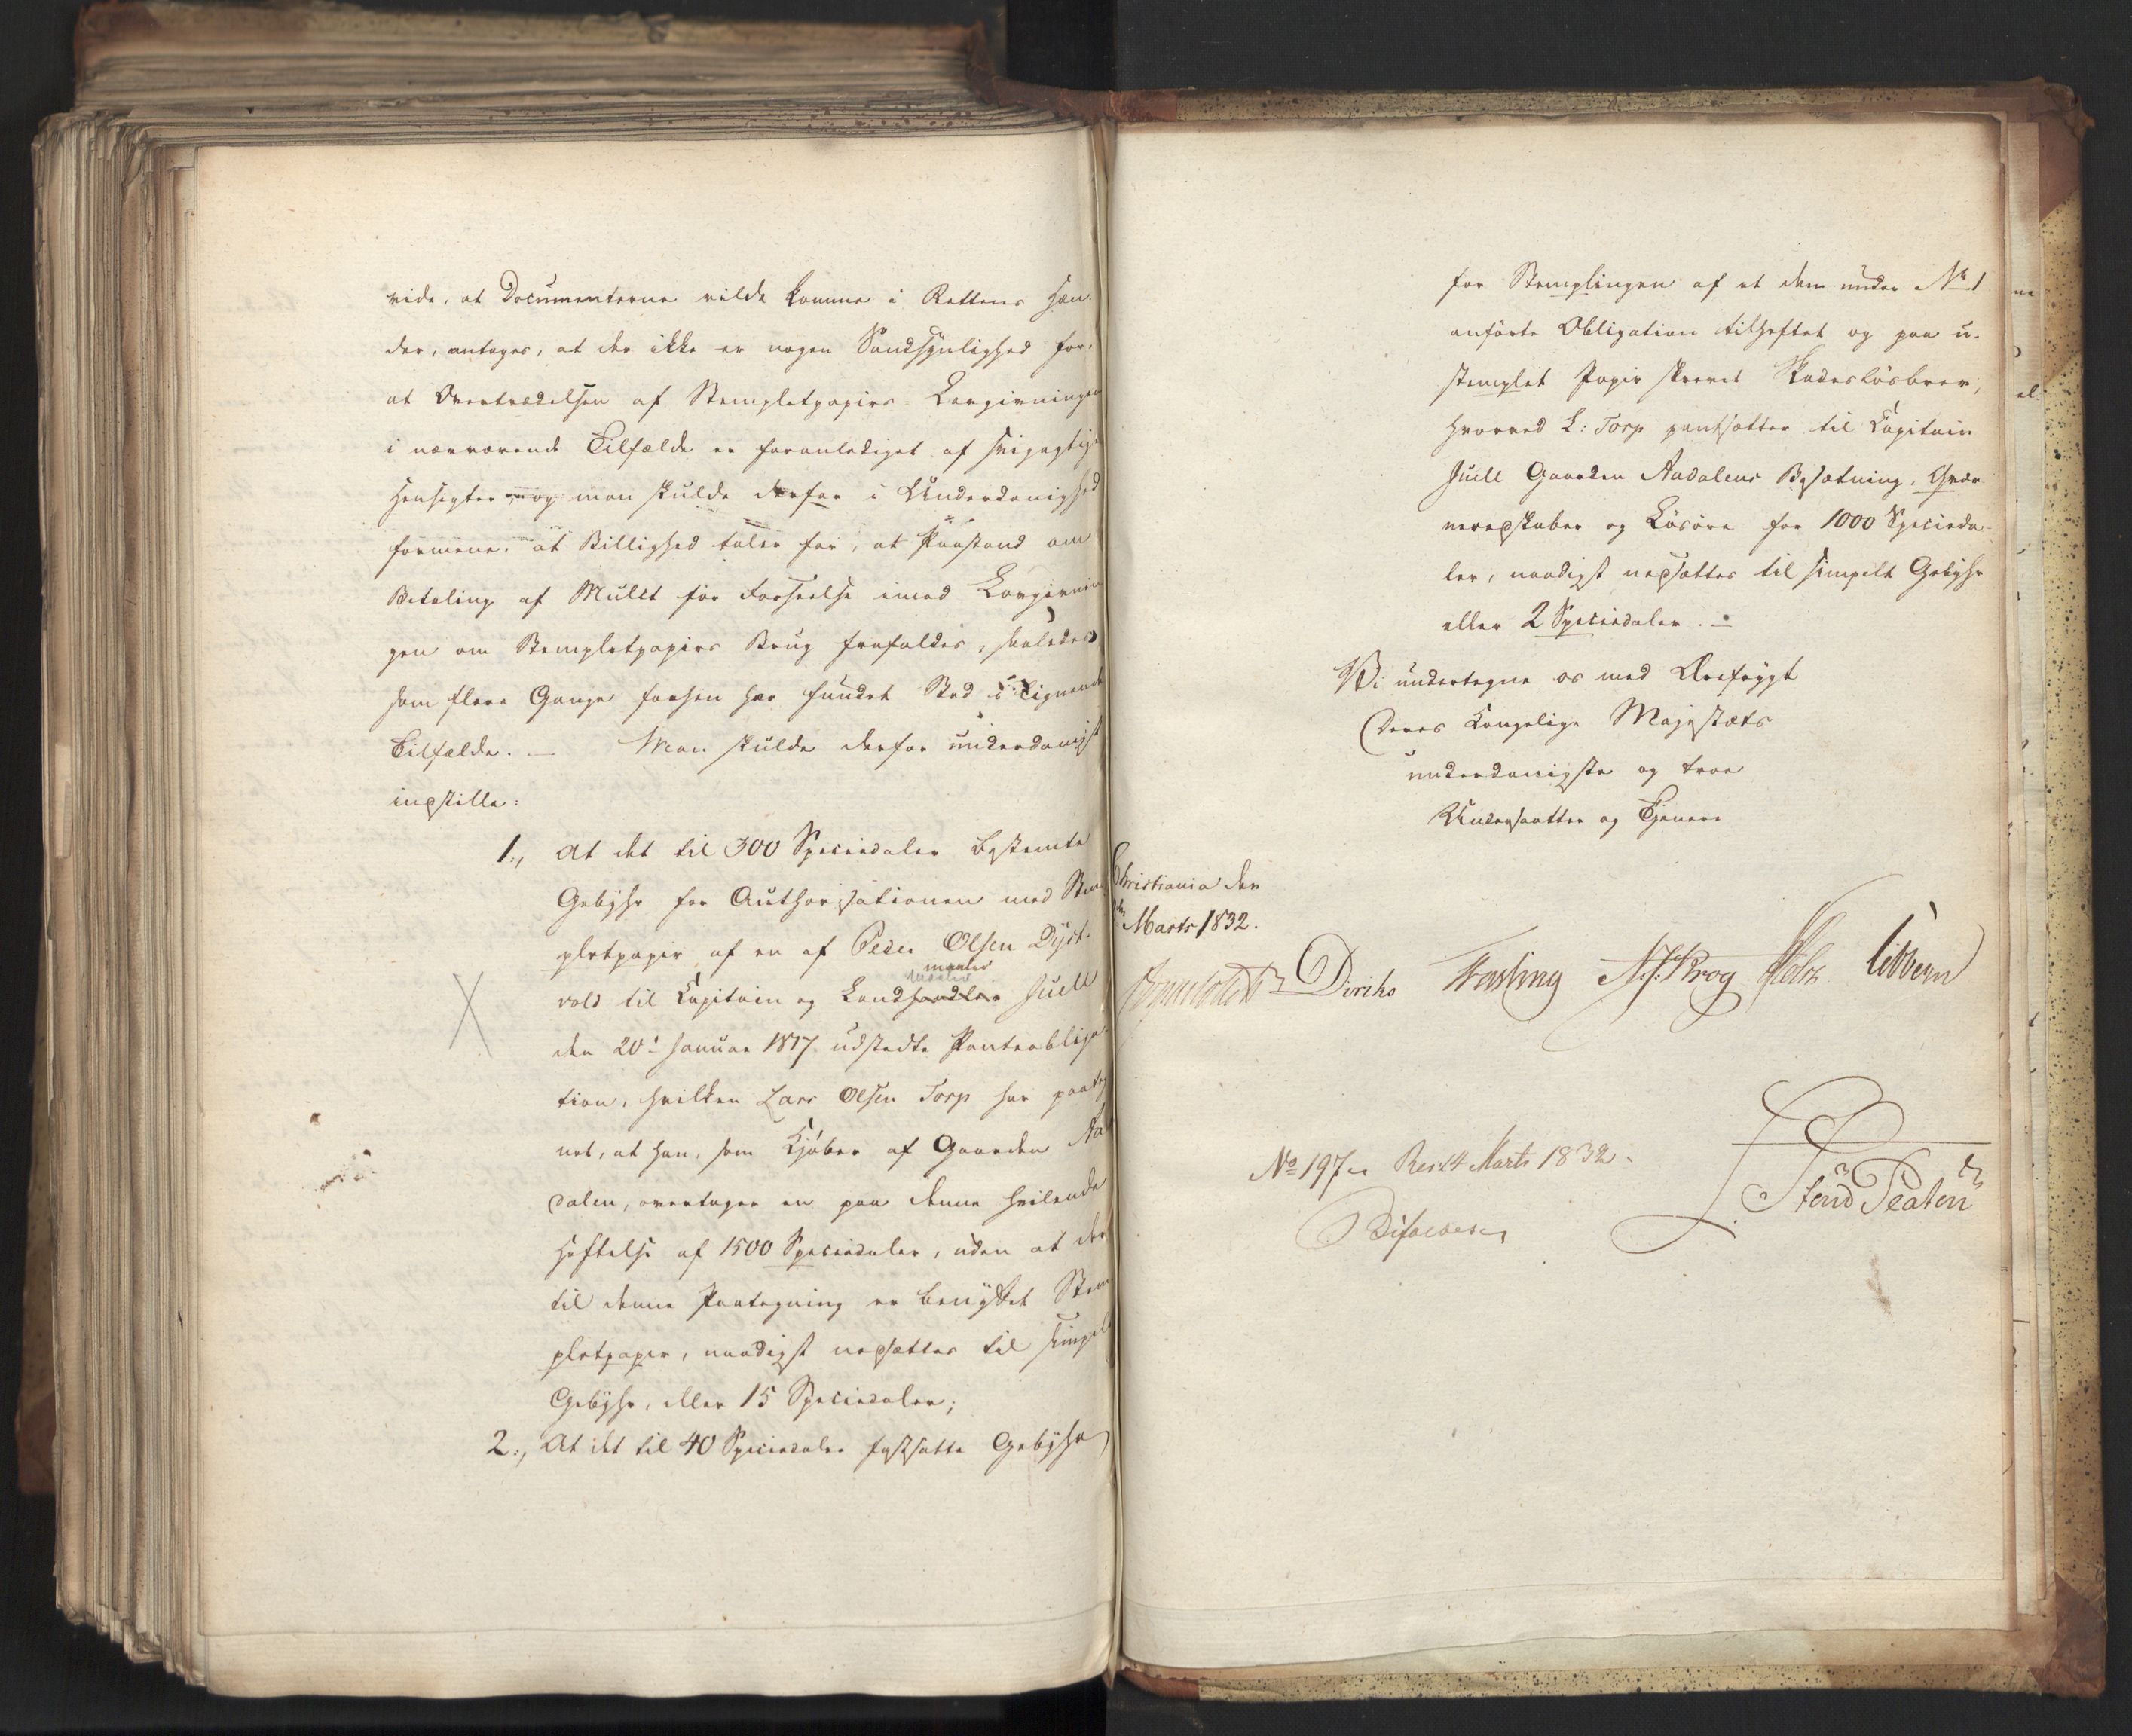 vide, at Documenterne vilde komme i Rettens Hæn-
der, antages, at der ikke er nogen Sandsynlighed for,
at Overtrædelsen af Stempletpapirs Lovgivningen
i nærværende Tilfælde er foranlediget af svigagtige
Hensigter og man skulde derfor i Underdanighed
formene, at Billighed taler for, at Paastand om
Betaling af Mulct for Forseelse imod Lovgivnin-
gen om Stempletpapirs Brug frafaldes, saaledes
som flere Gange forhen har fundet Sted i lignende
Tilfælde. — Man skulde derfor underdanigst
indstille:
1., At det til 300 Speciedaler bestemte
Gebyhr for Authorisationen med Stem-
pletpapir af en af Peder Olsen Dyst-
maaler
vold til Capitain og Landhandler Juell
den 20de Januar 1817 udstedte Panteobliga-
tion, hvilken Lars Olsen Torp har paateg-
net, at han, som Kjøber af Gaarden Aa-
dalen, overtager en paa denne hvilende
Heftelse af 1500 Speciedaler, uden at der
til denne Paategning er benyttet Stem-
pletpapir, naadigst nedsættes til simpelt
Gebyhr, eller 15 Speciedaler;
2., At det til 40 Speciedaler fastsatte Gebyhr
for Stemplingen af et dem under No 1
anførte Obligation tilheftet og paa u-
stemplet Papir skrevet Skadesløsbrev,
hvorved L: Torp pantsætter til Capitain
Juell Gaarden Aadalens Besætning, Qvær-
neredskaber og Løsøre for 1000 Specieda-
ler, naadigst nedsættes til simpelt Gebyhr
eller 2 Speciedaler. —
Vi undertegne os med Ærefrygt
Deres Kongelige Majestæts
underdanigste og troe
Undersaatter og Tjenere
Christiania den
Marts 1832.
Diriks Fasting N. J. Krog Holst Sibbern
No 197 Res 14 Marts 1832.